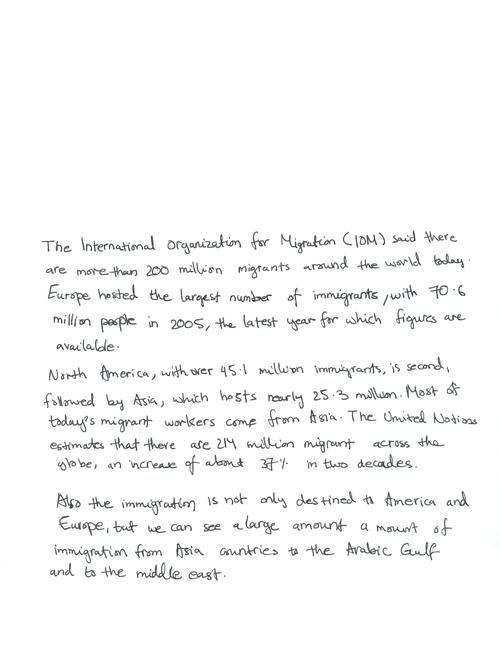 The International Organization for Migration (IOM) said there
are more than 200 million migrants around the world today.
Europe hosted the largest number of immigrants, with 70.6
million people in 2005, the latest year for which figures are
available.
North America, with over 45.1 million immigrants, is second,
followed by Asia, which hosts nearly 25.3 million. Most of
today's migrant workers come from Asia. The United Nations
estimates that there are 214 million migrant across the
globe, an increase of about 37% in two decades.
Also the immigration is not only destined to America and
Europe, but we can see a large amount a mount of
immigration from Asia countries to the Arabic Gulf
and to the middle east.